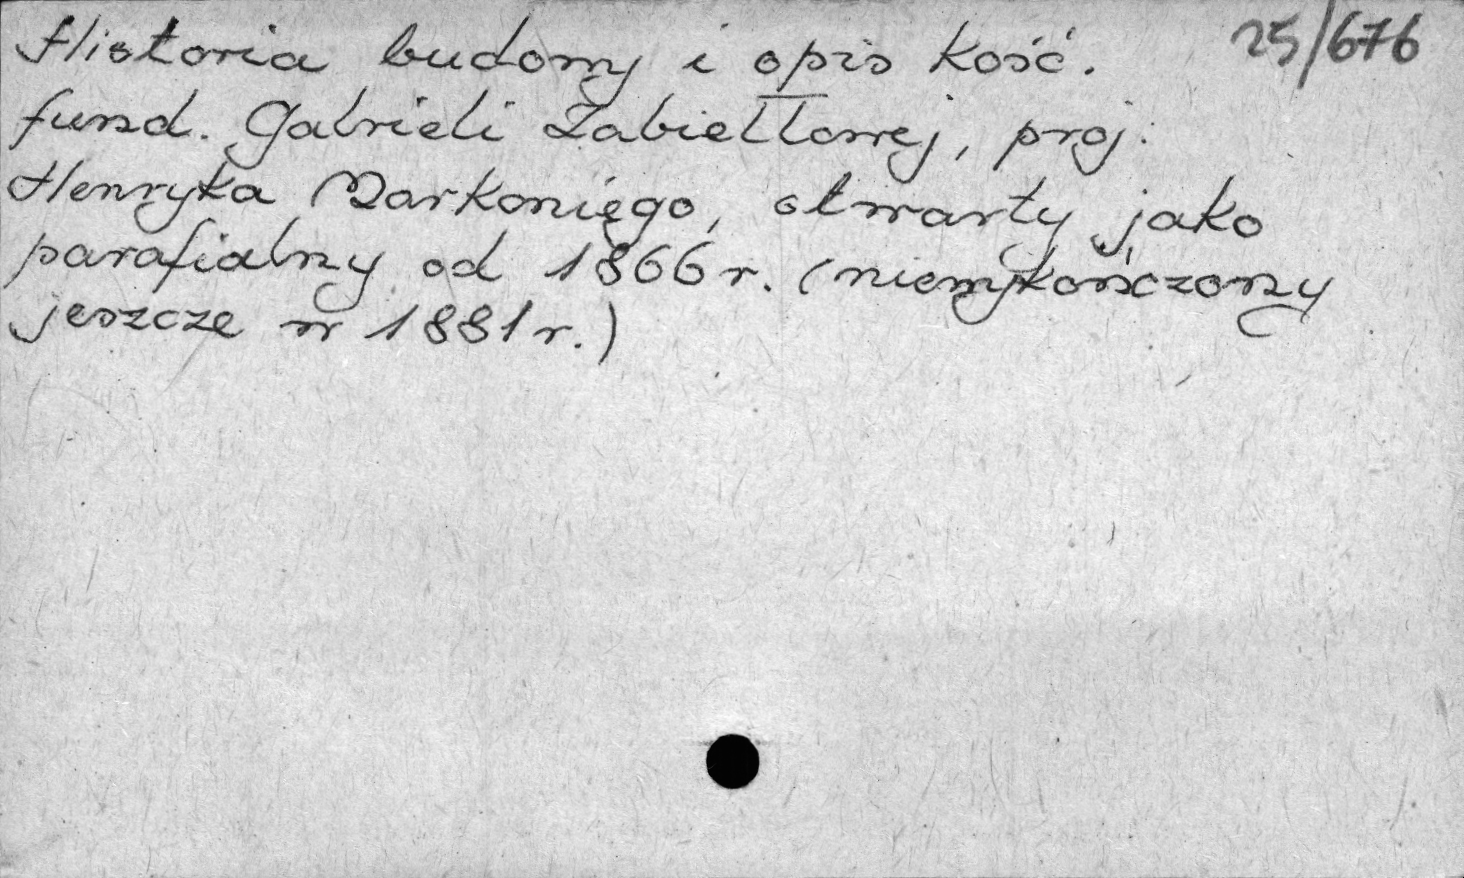 25/676
Historia budowy i opis kość.
fund. Gabrieli Zabiełłowej, proj.
Henryka Markoniego, otwarty jako
parafialny od 1866 r. (niewykończony
jeszcze w 1881 r.)